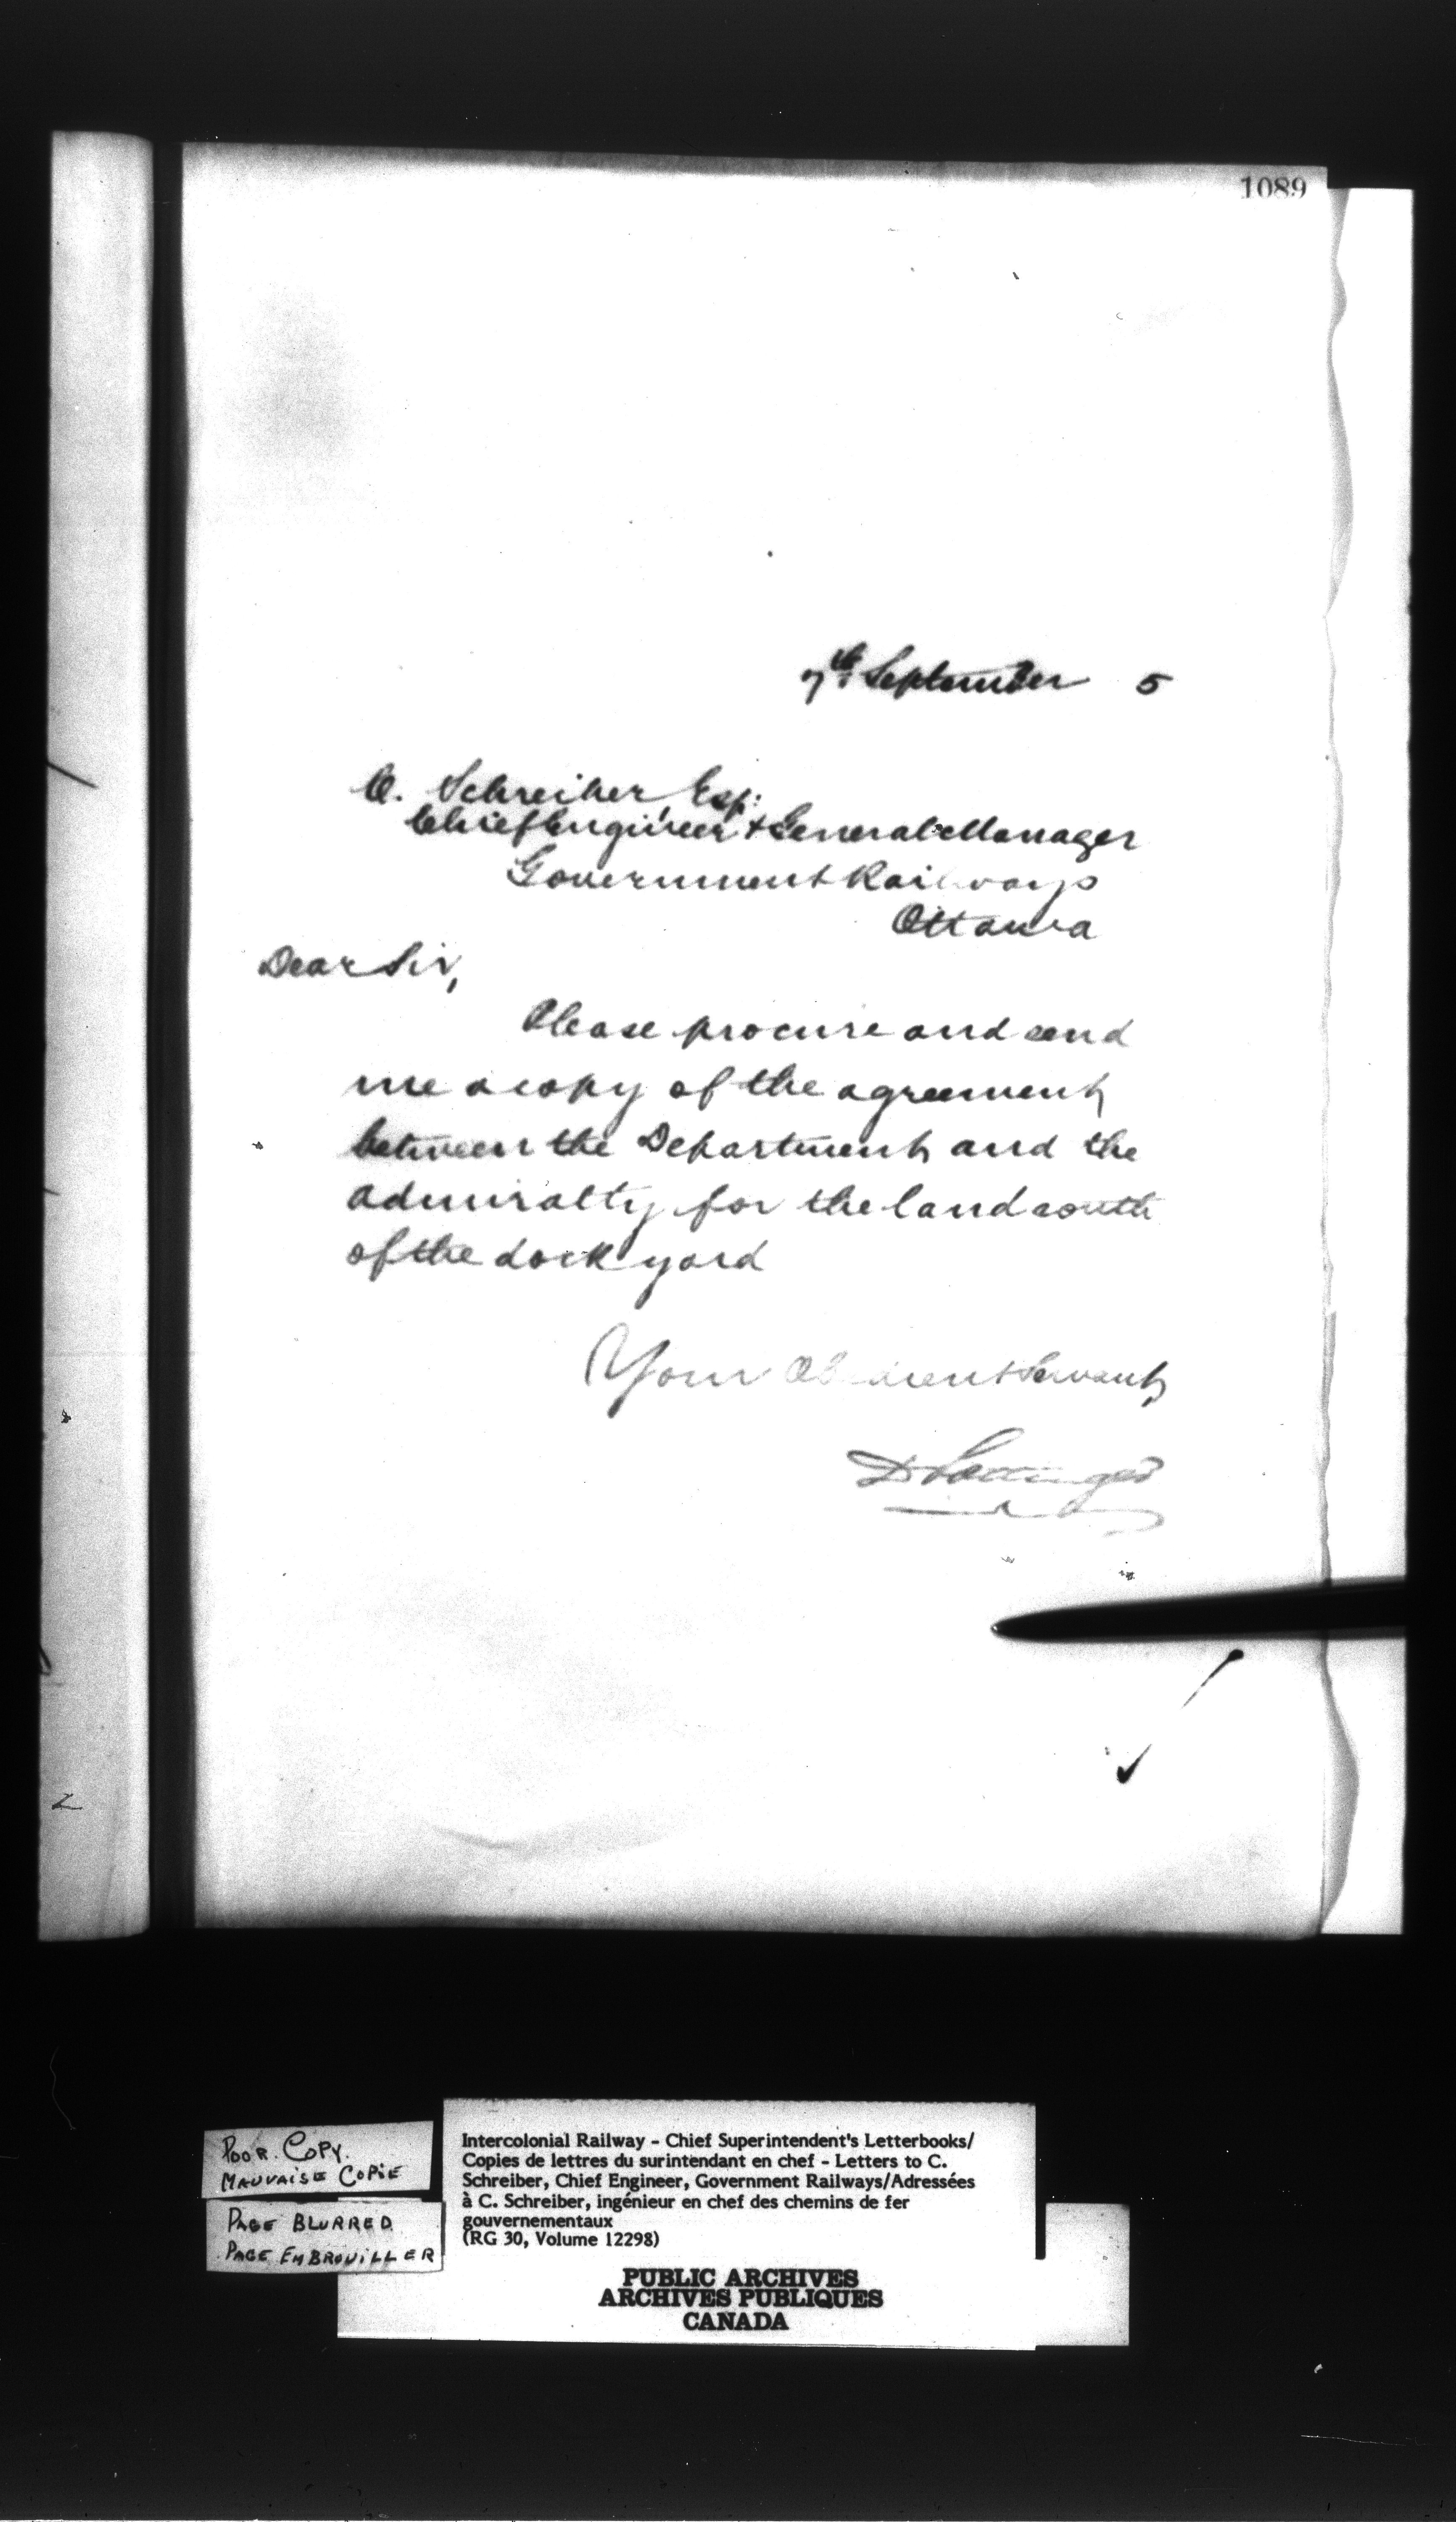 1089
7th September 5
C. Schreiber, Esq:
Chief Engineer & General Manager
Government Railways
Ottawa
Dear Sir,
Please procure and send
me a copy of the agreement
between the Department and the
Admiralty for the land south
of the dock yard
Your Obedient Servant,
D Pottinger
POOR. COPY.
MAUVAISE COPIE
PAGE BLURRED
PAGE EMBROUILLER
Intercolonial Railway - Chief Superintendent's Letterbooks/
Copies de lettres du surintendant en chef - Letters to C.
Schreiber, Chief Engineer, Government Railways/Adressées
à C. Schreiber, ingénieur en chef des chemins de fer
gouvernementaux
(RG 30, Volume 12298)
PUBLIC ARCHIVES
ARCHIVES PUBLIQUES
CANADA